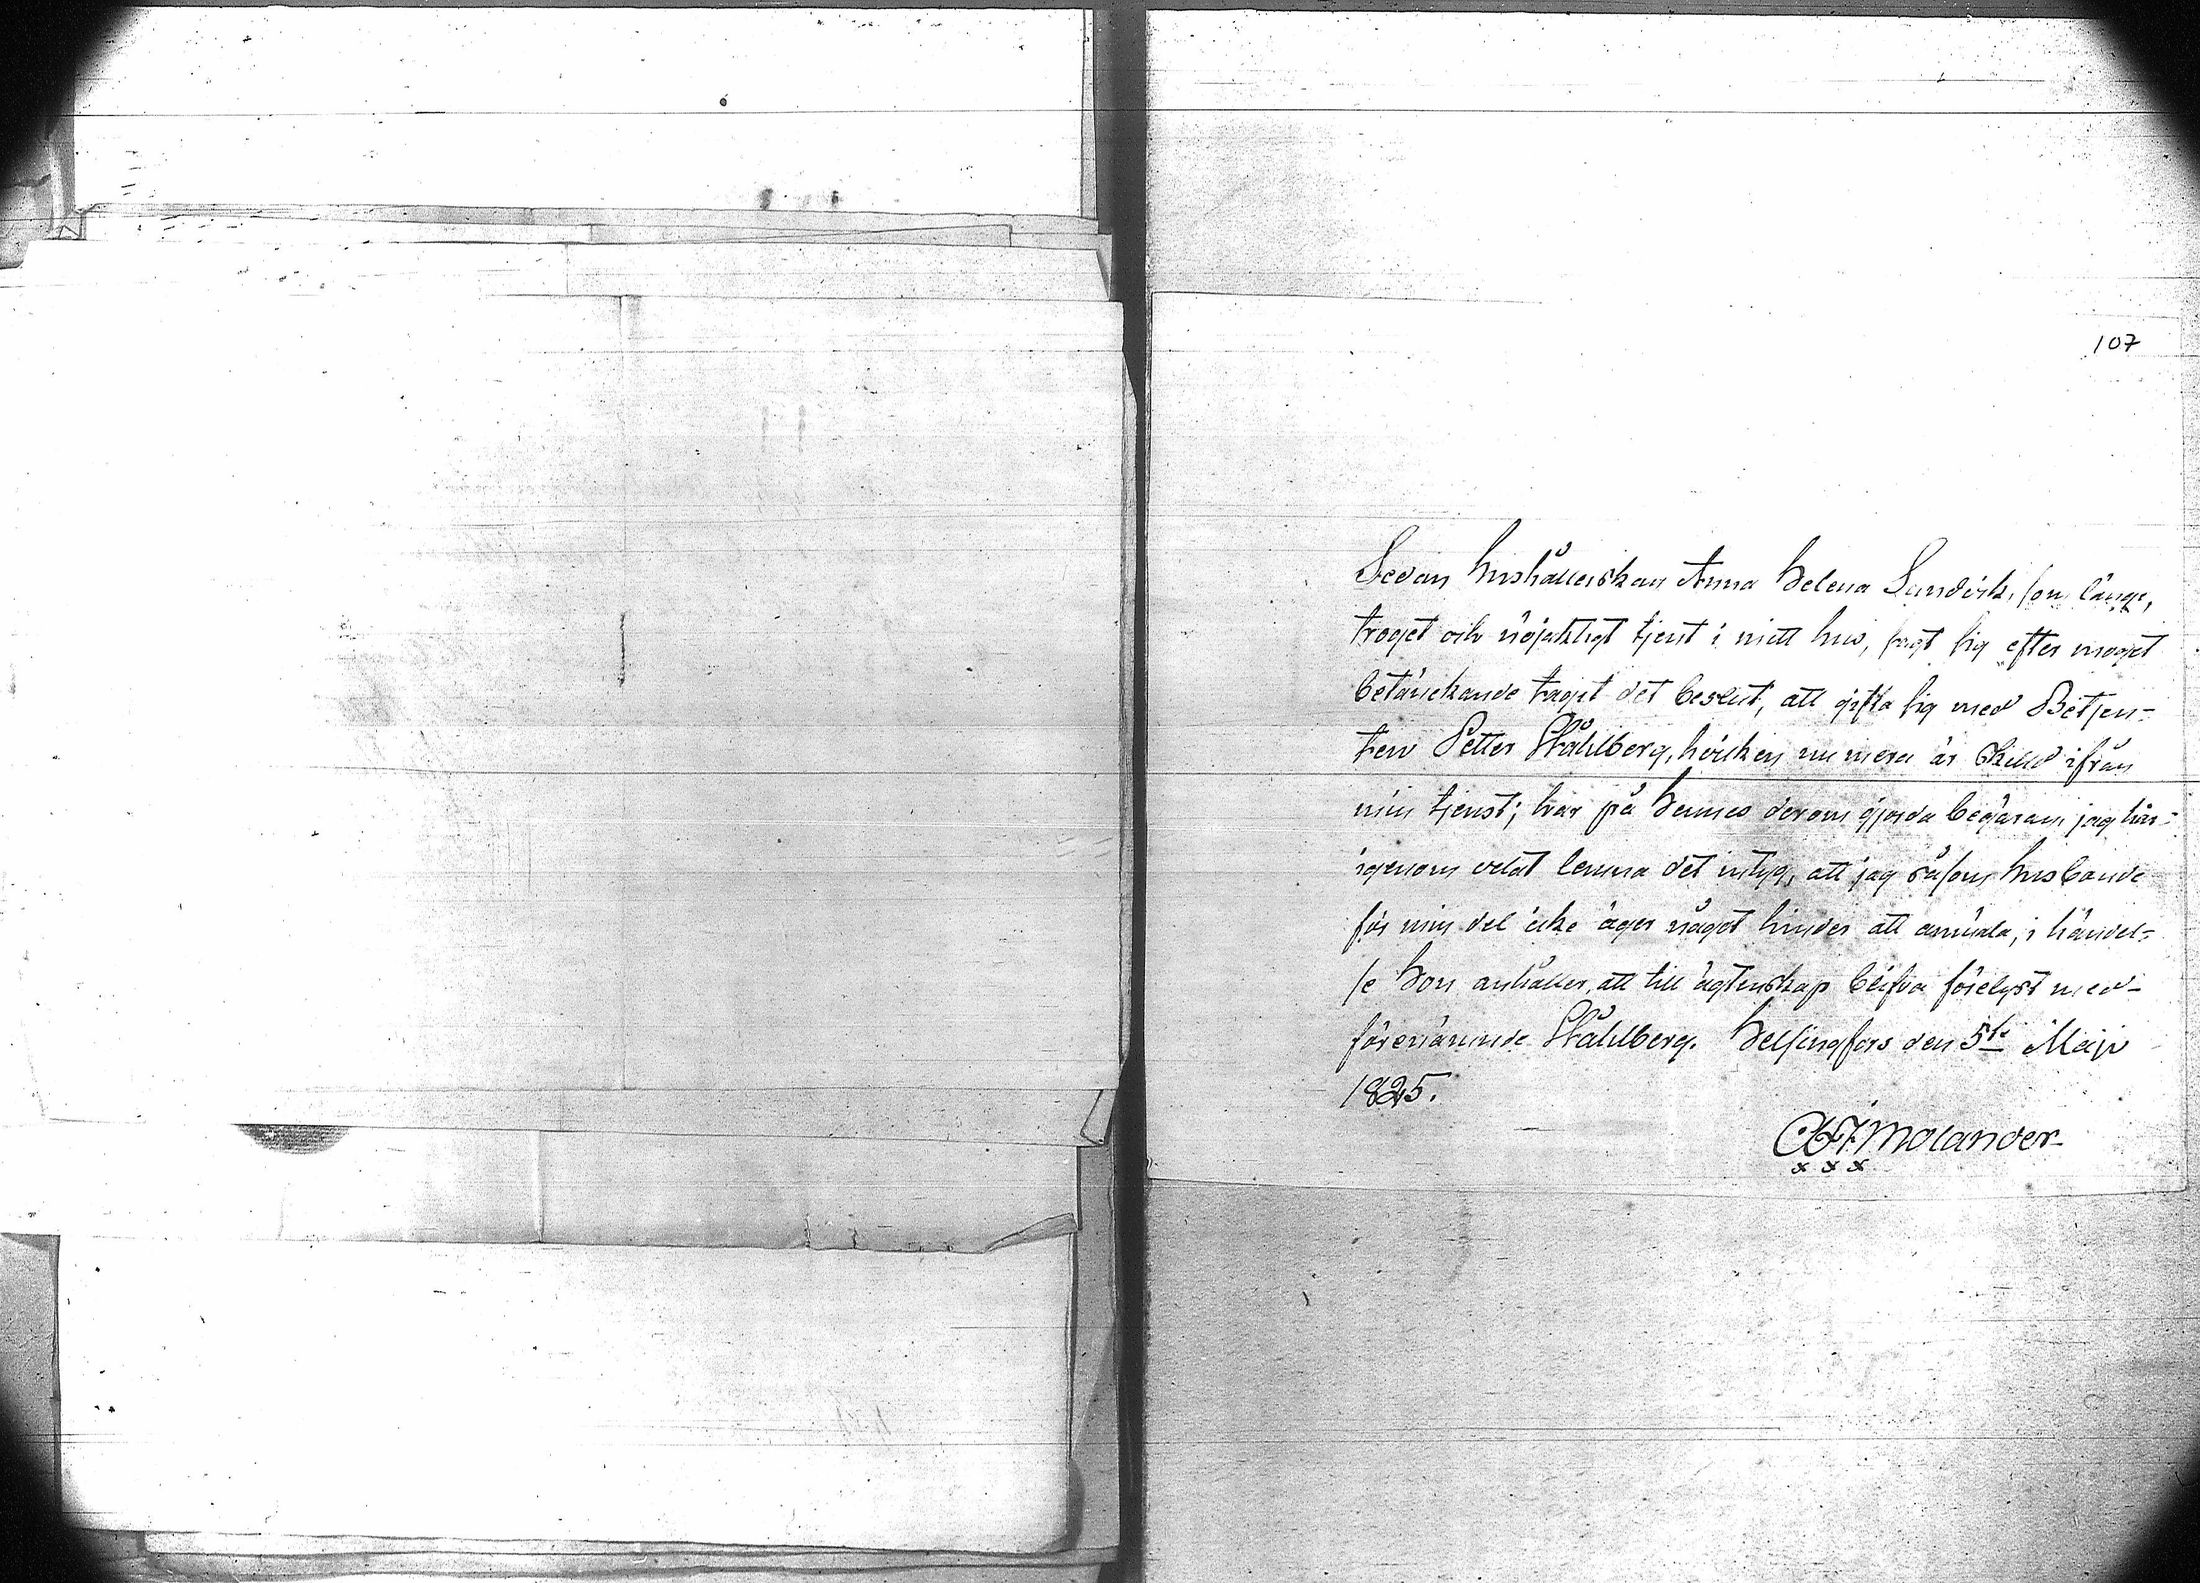 107
Sedan hushållerskan Anna Helena Sundvik, som länge,
troget och nöjaktigt tjent i mitt hus, sagt sig efter moget
betänckande tagit det beslut, att gifta sig med Betjen-
ten Petter Ståhlberg, hvilken numera är skilld ifrån
min tjenst; har på hennes derom gjorda begäran jag här-
igenom velat lemna det intyg, att jag såsom husbonde
för min del icke äger något hinder att anmäla, i händel-
se hon anhåller, att till ägtenskap blifva förelyst med
förenämnde Ståhlberg. Helsingfors den 5te Maji
1825.
Molander